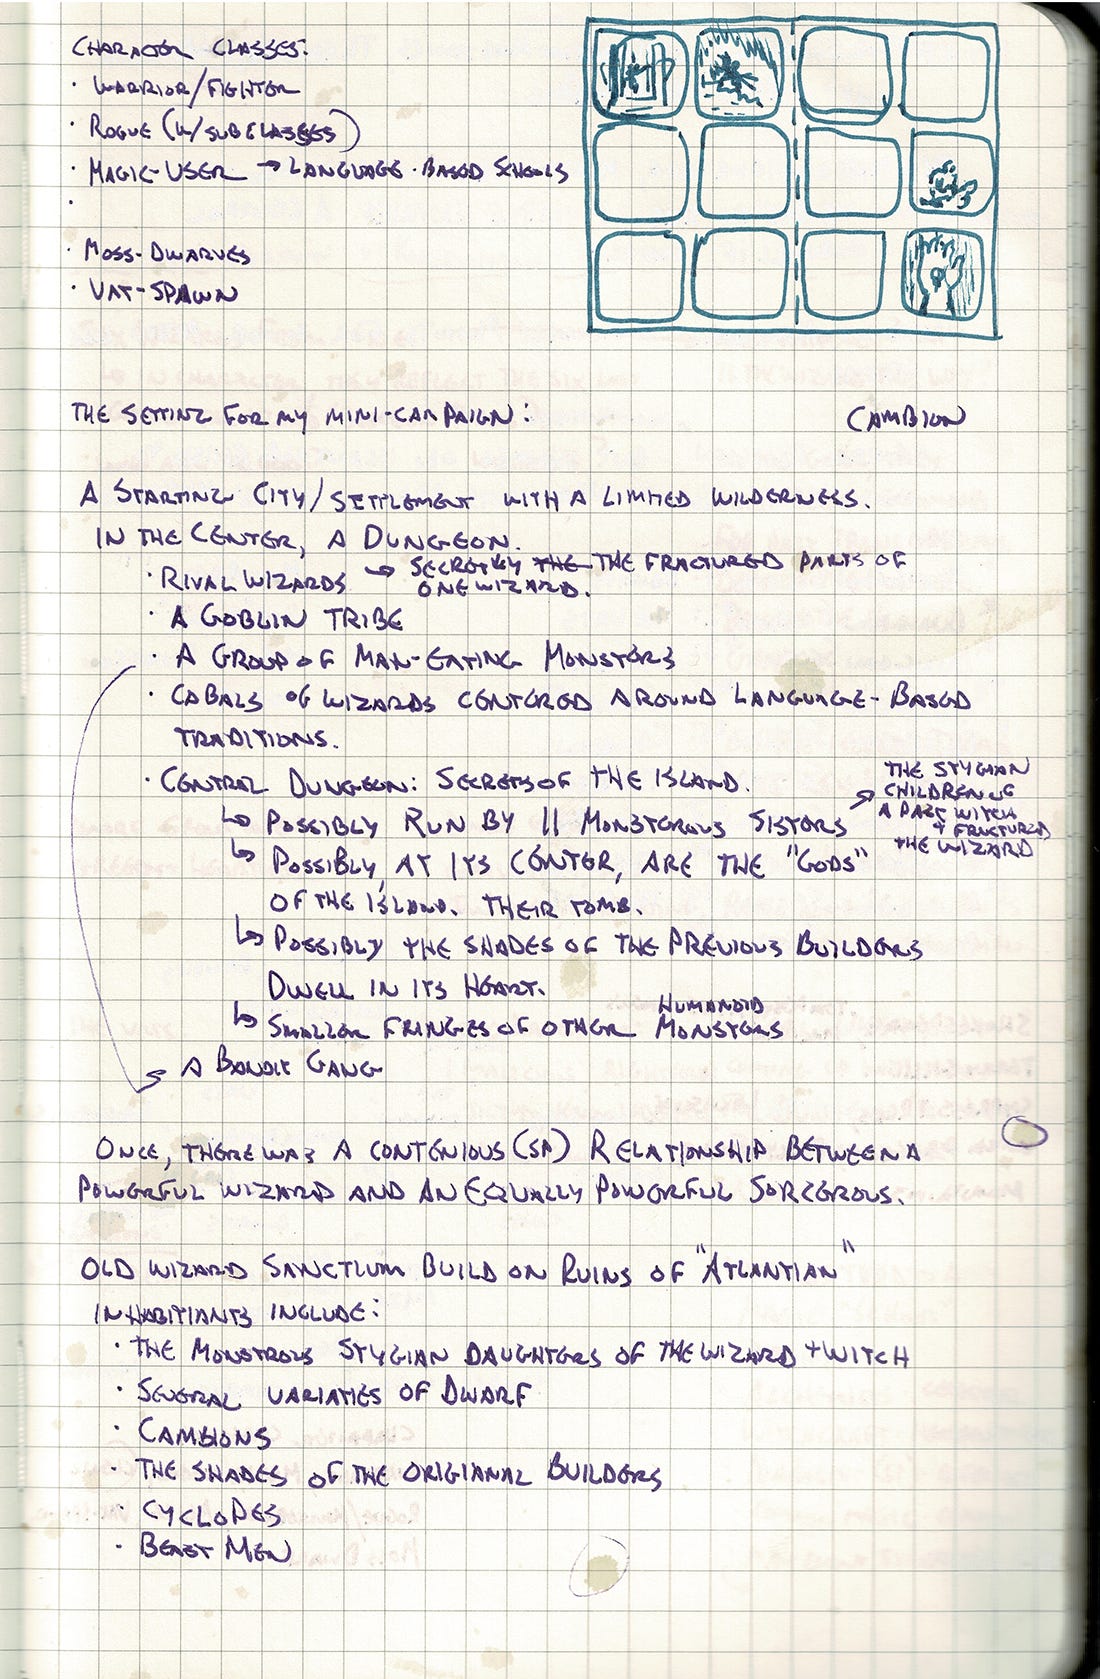 CHARACTER CLASSES:
· WARRIOR/FIGHTER
· ROGUE (W/SUBCLASSES)
· MAGIC-USER → LANGUAGE-BASED SCHOOLS
·
· MOSS-DWARVES
· VAT-SPAWN
THE SETTING FOR MY MINI-CAMPAIGN:
CAMBION
A STARTING CITY/SETTLEMENT WITH A LIMITED WILDERNESS.
IN THE CENTER, A DUNGEON.
· RIVAL WIZARDS → SECRETLY THE THE FRACTURED PARTS OF
ONE WIZARD.
· A GOBLIN TRIBE
· A GROUP OF MAN-EATING MONSTERS
· CABALS OF WIZARDS CENTERED AROUND LANGUAGE-BASED
TRADITIONS.
· CENTRAL DUNGEON: SECRETS OF THE ISLAND.
↳ POSSIBLY RUN BY 11 MONSTEROUS SISTERS
→ THE STYGIAN
CHILDREN OF
A PAST WITCH
+ FRACTURED
THE WIZARD
↳ POSSIBLY, AT ITS CENTER, ARE THE "GODS"
OF THE ISLAND. THEIR TOMB.
↳ POSSIBLY THE SHADES OF THE PREVIOUS BUILDERS
DWELL IN ITS HEART.
HUMANOID
↳ SMALLER FRINGES OF OTHER MONSTERS
→ A BANDIT GANG
ONCE, THERE WAS A CONTENIOUS (SP) RELATIONSHIP BETWEEN A
POWERFUL WIZARD AND AN EQUALLY POWERFUL SORCEROUS.
OLD WIZARD SANCTUM BUILD ON RUINS OF "ATLANTIAN"
INHABITIANTS INCLUDE:
· THE MONSTROUS STYGIAN DAUGHTERS OF THE WIZARD + WITCH
· SEVERAL VARIATIES OF DWARF
· CAMBIONS
· THE SHADES OF THE ORIGIANAL BUILDERS
· CYCLOPES
· BEAST MEN